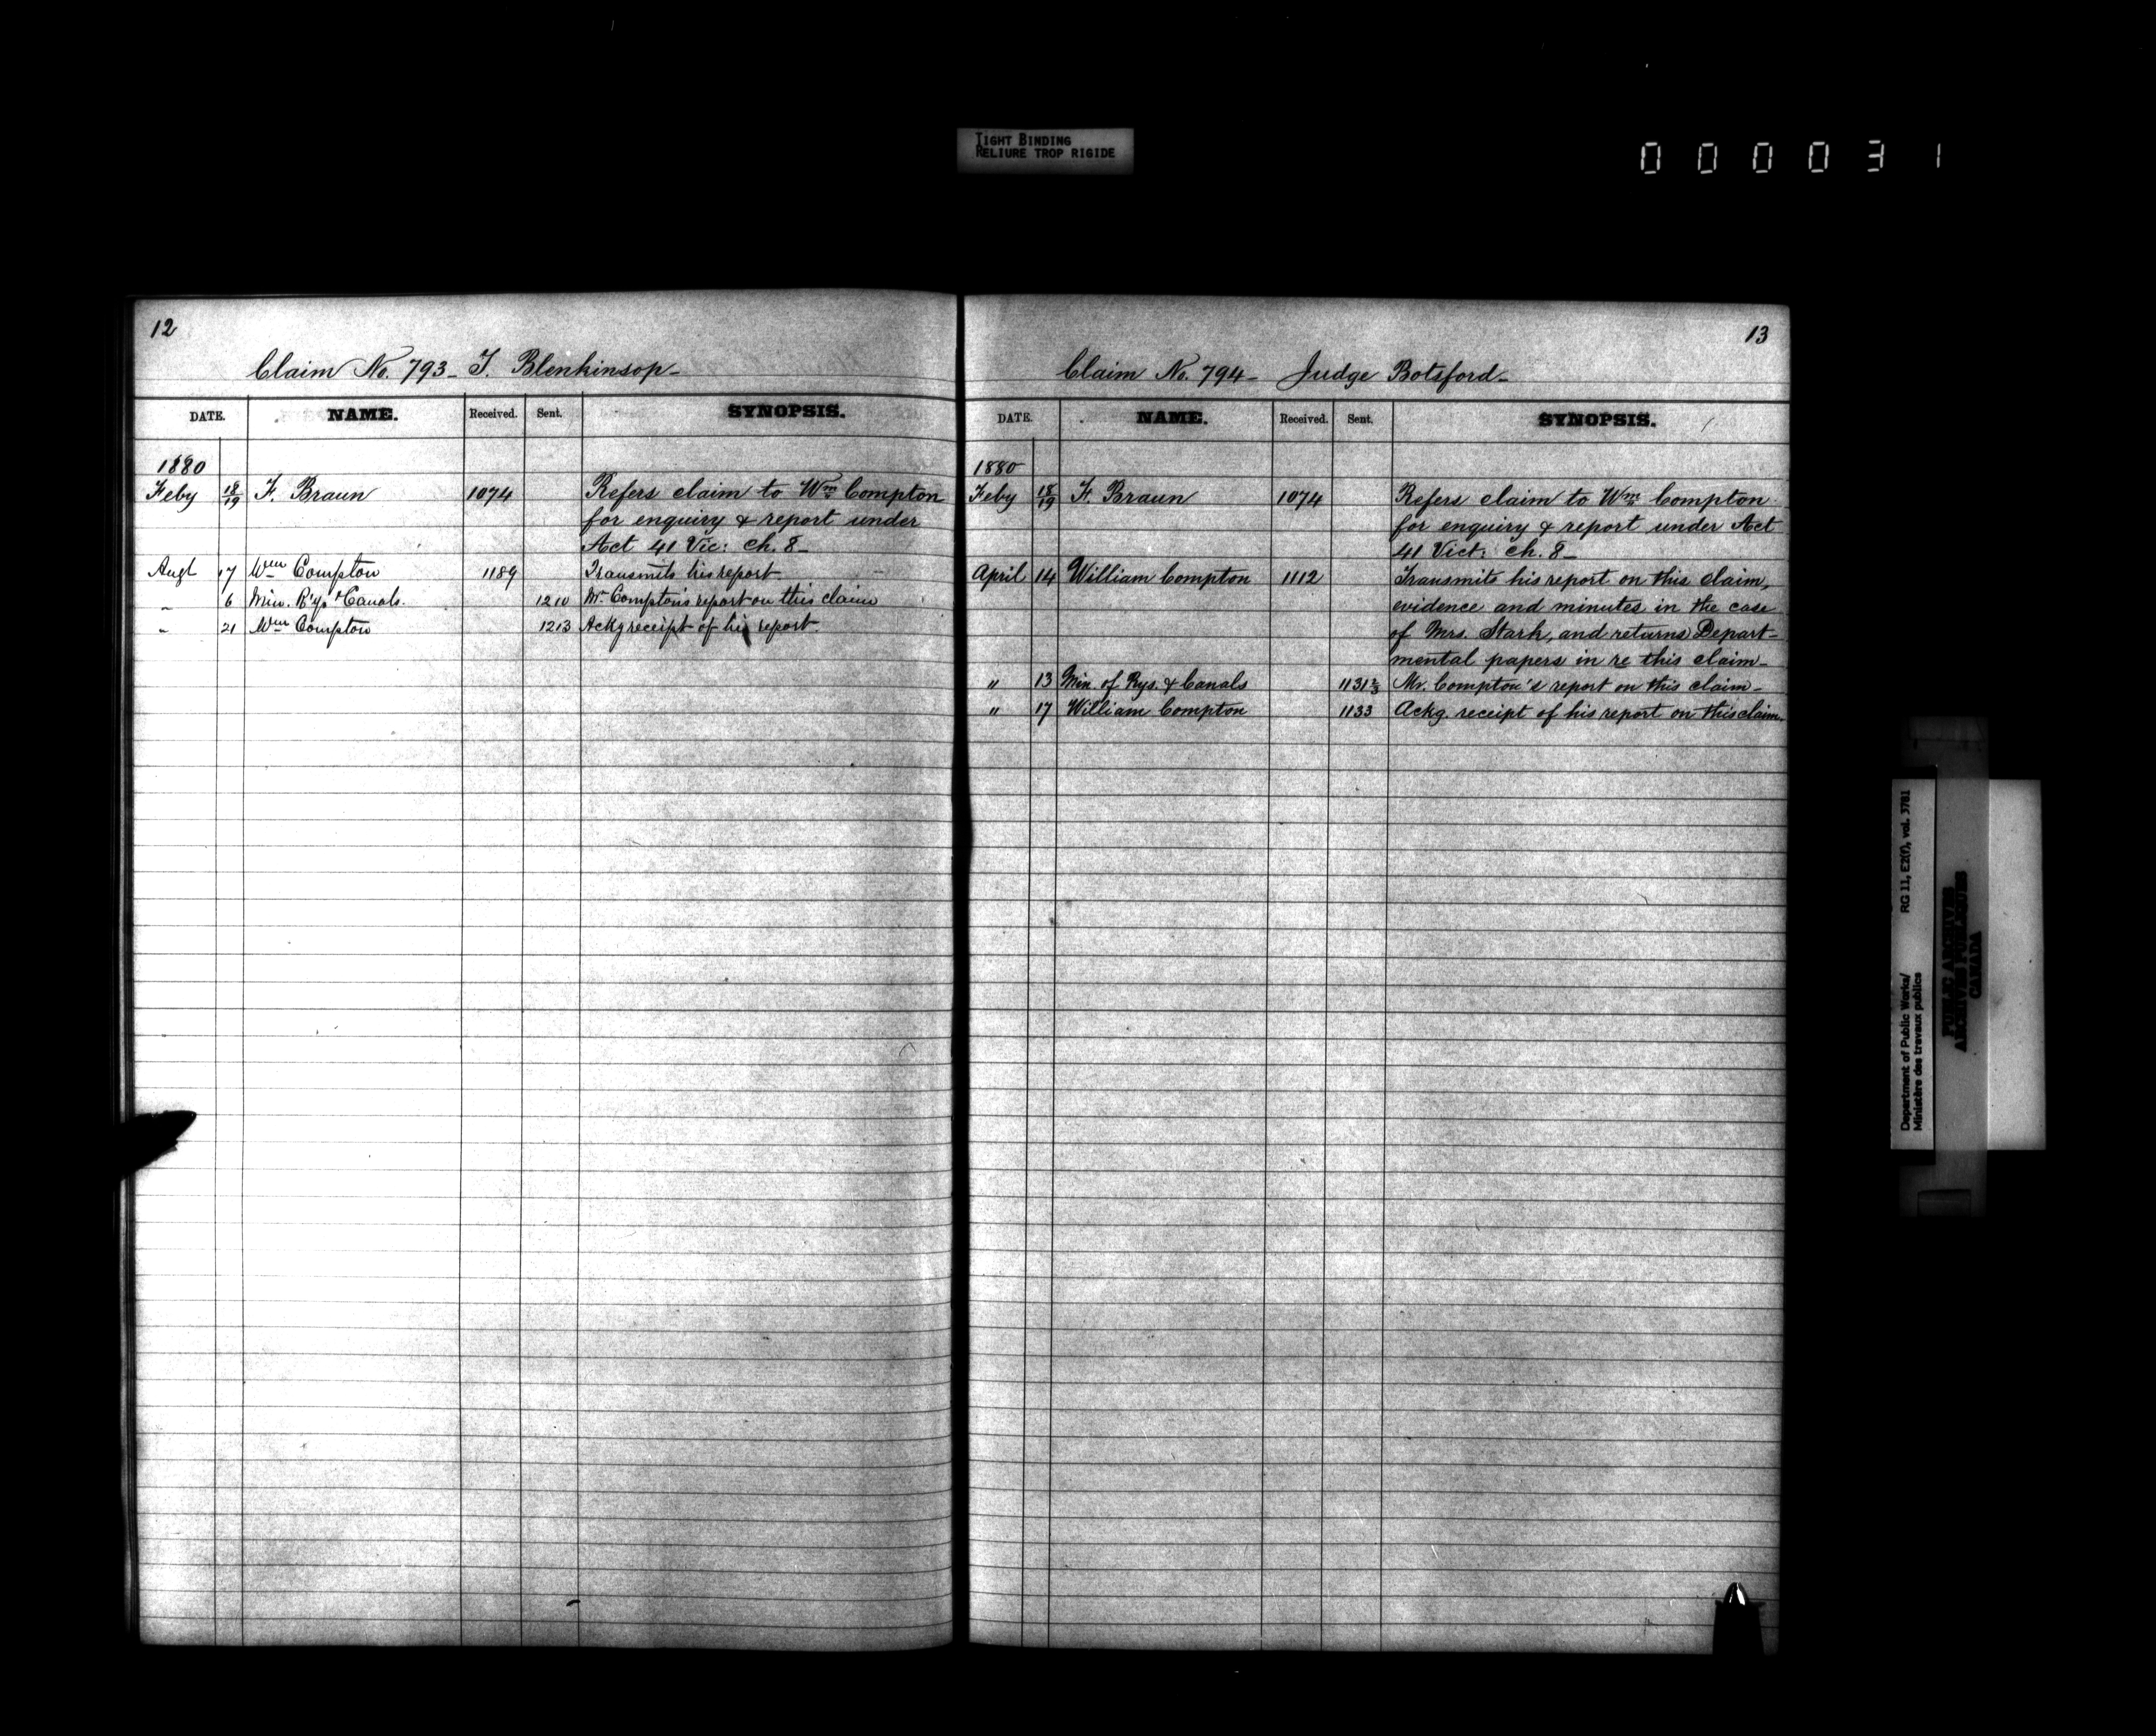 TIGHT BINDING
RELIURE TROP RIGIDE
000031
12
Claim No. 793 - T. Blenkinsop -
DATE. NAME. Received. Sent. SYNOPSIS.
1880
Feby 18/19 F. Braun 1074 Refers claim to Wm Compton
for enquiry & report under
Act 41 Vic: ch. 8 -
Augt 17 Wm Compton 1189 Transmits his report
" 6 Min. R'ys & Canals. 1210 Mr Compton's report on this claim
" 21 Wm Compton 1213 Ackg receipt of his report.
13
Claim No. 794 - Judge Botsford -
DATE. NAME. Received. Sent. SYNOPSIS.
1880
Feby 18/19 F. Braun 1074 Refers claim to Wm Compton
for enquiry & report under Act
41 Vict: ch. 8 -
April 14 William Compton 1112 Transmits his report on this claim,
evidence and minutes in the case
of Mrs. Stark, and returns Depart-
mental papers in re this claim -
" 13 Min. of Rys. & Canals 1131 2/3 Mr. Compton's report on this claim -
" 17 William Compton 1133 Ackg. receipt of his report on this claim.
Department of Public Works/ RG 11, E2(f), vol. 3781
Ministère des travaux publics
PUBLIC ARCHIVES
ARCHIVES PUBLIQUES
CANADA